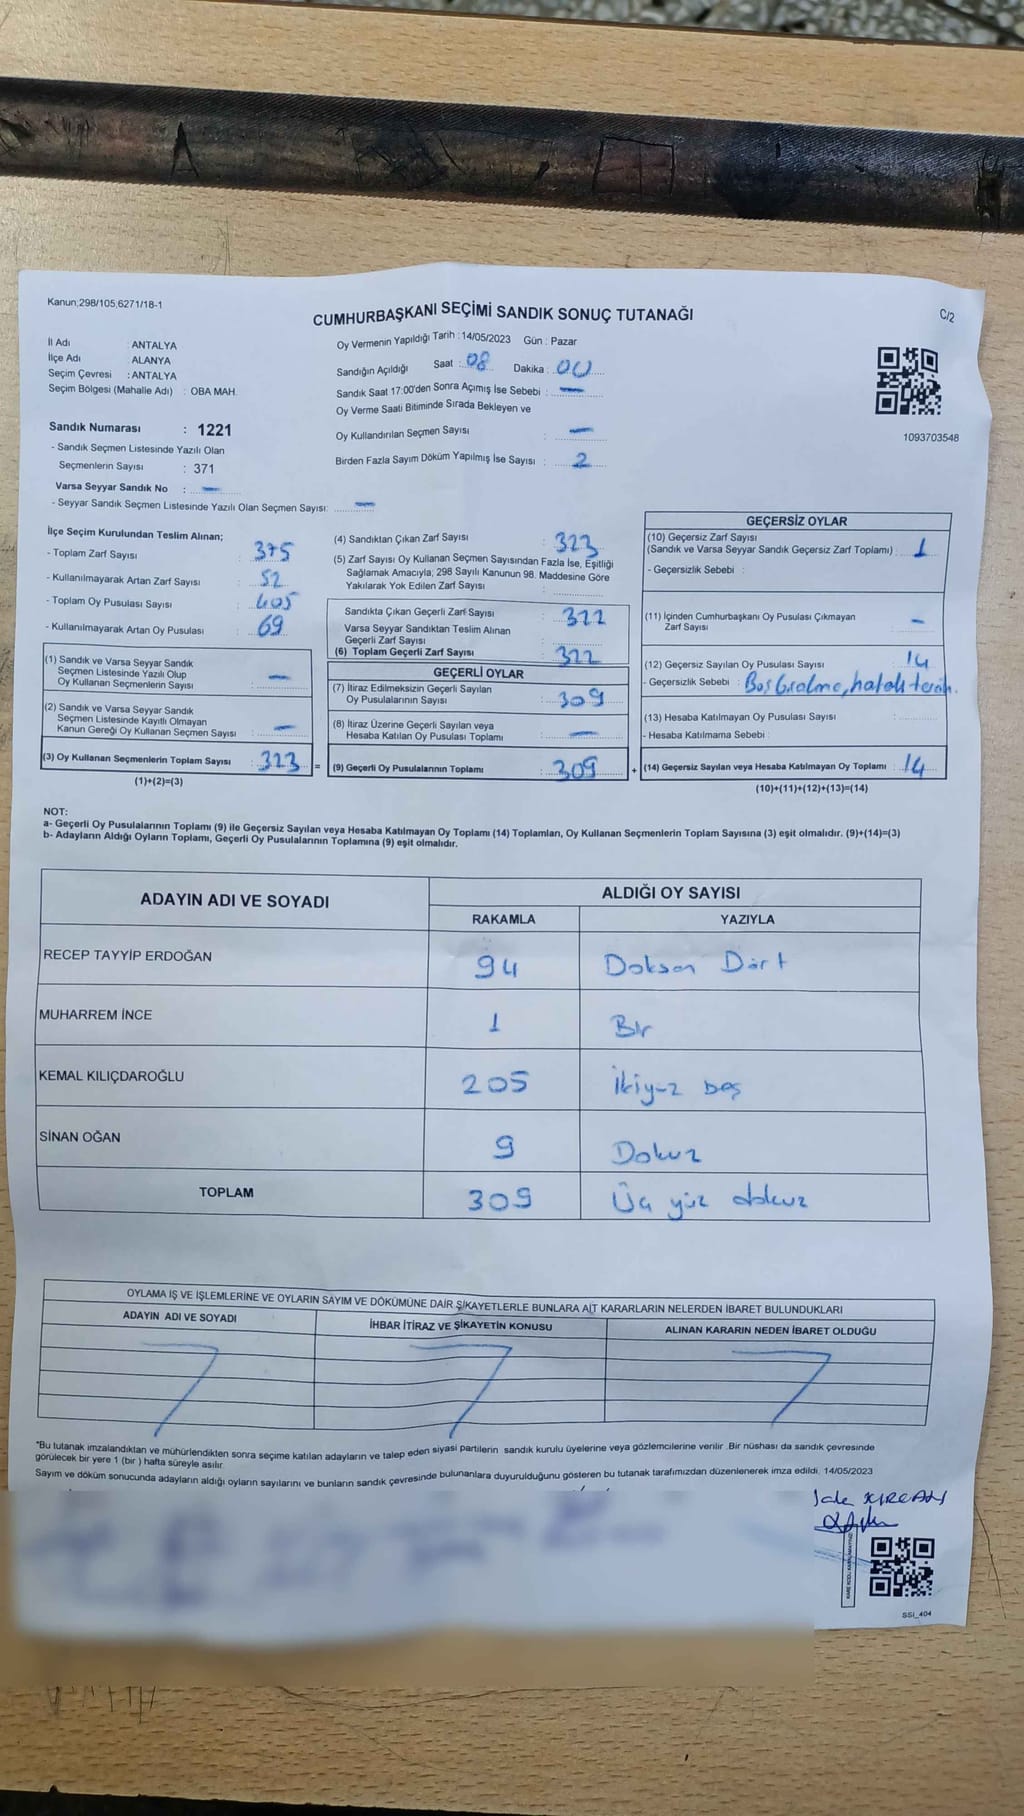 Kanun;298/105,6271/18-1
CUMHURBAŞKANI SEÇİMİ SANDIK SONUÇ TUTANAĞI
C/2
İl Adı : ANTALYA
İlçe Adı : ALANYA
Seçim Çevresi : ANTALYA
Seçim Bölgesi (Mahalle Adı) : OBA MAH.
Oy Vermenin Yapıldığı Tarih : 14/05/2023 Gün : Pazar
Sandığın Açıldığı Saat : 08 Dakika : 00
Sandık Saat 17:00'den Sonra Açımış İse Sebebi : —
Oy Verme Saati Bitiminde Sırada Bekleyen ve
Oy Kullandırılan Seçmen Sayısı : —
Birden Fazla Sayım Döküm Yapılmış İse Sayısı : 2
1093703548
Sandık Numarası : 1221
- Sandık Seçmen Listesinde Yazılı Olan
Seçmenlerin Sayısı : 371
Varsa Seyyar Sandık No : —
- Seyyar Sandık Seçmen Listesinde Yazılı Olan Seçmen Sayısı: —
İlçe Seçim Kurulundan Teslim Alınan;
- Toplam Zarf Sayısı : 375
- Kullanılmayarak Artan Zarf Sayısı : 52
- Toplam Oy Pusulası Sayısı : 405
- Kullanılmayarak Artan Oy Pusulası : 69
(1) Sandık ve Varsa Seyyar Sandık
Seçmen Listesinde Yazılı Olup
Oy Kullanan Seçmenlerin Sayısı : —
(2) Sandık ve Varsa Seyyar Sandık
Seçmen Listesinde Kayıtlı Olmayan
Kanun Gereği Oy Kullanan Seçmen Sayısı : —
(3) Oy Kullanan Seçmenlerin Toplam Sayısı : 323 =
(1)+(2)=(3)
(4) Sandıktan Çıkan Zarf Sayısı : 323
(5) Zarf Sayısı Oy Kullanan Seçmen Sayısından Fazla İse, Eşitliği
Sağlamak Amacıyla; 298 Sayılı Kanunun 98. Maddesine Göre
Yakılarak Yok Edilen Zarf Sayısı :
Sandıkta Çıkan Geçerli Zarf Sayısı : 322
Varsa Seyyar Sandıktan Teslim Alınan
Geçerli Zarf Sayısı :
(6) Toplam Geçerli Zarf Sayısı : 322
GEÇERLİ OYLAR
(7) İtiraz Edilmeksizin Geçerli Sayılan
Oy Pusulalarının Sayısı : 309
(8) İtiraz Üzerine Geçerli Sayılan veya
Hesaba Katılan Oy Pusulası Toplamı : —
(9) Geçerli Oy Pusulalarının Toplamı : 309 +
GEÇERSİZ OYLAR
(10) Geçersiz Zarf Sayısı
(Sandık ve Varsa Seyyar Sandık Geçersiz Zarf Toplamı) : 1
- Geçersizlik Sebebi :
(11) İçinden Cumhurbaşkanı Oy Pusulası Çıkmayan
Zarf Sayısı : —
(12) Geçersiz Sayılan Oy Pusulası Sayısı : 14
- Geçersizlik Sebebi : Boş bırakma, hatalı tercih.
(13) Hesaba Katılmayan Oy Pusulası Sayısı :
- Hesaba Katılmama Sebebi :
(14) Geçersiz Sayılan veya Hesaba Katılmayan Oy Toplamı : 14
(10)+(11)+(12)+(13)=(14)
NOT:
a- Geçerli Oy Pusulalarının Toplamı (9) ile Geçersiz Sayılan veya Hesaba Katılmayan Oy Toplamı (14) Toplamları, Oy Kullanan Seçmenlerin Toplam Sayısına (3) eşit olmalıdır. (9)+(14)=(3)
b- Adayların Aldığı Oyların Toplamı, Geçerli Oy Pusulalarının Toplamına (9) eşit olmalıdır.
ADAYIN ADI VE SOYADI
ALDIĞI OY SAYISI
RAKAMLA YAZIYLA
RECEP TAYYİP ERDOĞAN 94 Doksan Dört
MUHARREM İNCE 1 Bir
KEMAL KILIÇDAROĞLU 205 İkiyüz beş
SİNAN OĞAN 9 Dokuz
TOPLAM 309 Üç yüz dokuz
OYLAMA İŞ VE İŞLEMLERİNE VE OYLARIN SAYIM VE DÖKÜMÜNE DAİR ŞİKAYETLERLE BUNLARA AİT KARARLARIN NELERDEN İBARET BULUNDUKLARI
ADAYIN ADI VE SOYADI İHBAR İTİRAZ VE ŞİKAYETİN KONUSU ALINAN KARARIN NEDEN İBARET OLDUĞU
*Bu tutanak imzalandıktan ve mühürlendikten sonra seçime katılan adayların ve talep eden siyasi partilerin sandık kurulu üyelerine veya gözlemcilerine verilir .Bir nüshası da sandık çevresinde
görülecek bir yere 1 (bir ) hafta süreyle asılır.
Sayım ve döküm sonucunda adayların aldığı oyların sayılarını ve bunların sandık çevresinde bulunanlara duyurulduğunu gösteren bu tutanak tarafımızdan düzenlenerek imza edildi. 14/05/2023
SSI_404